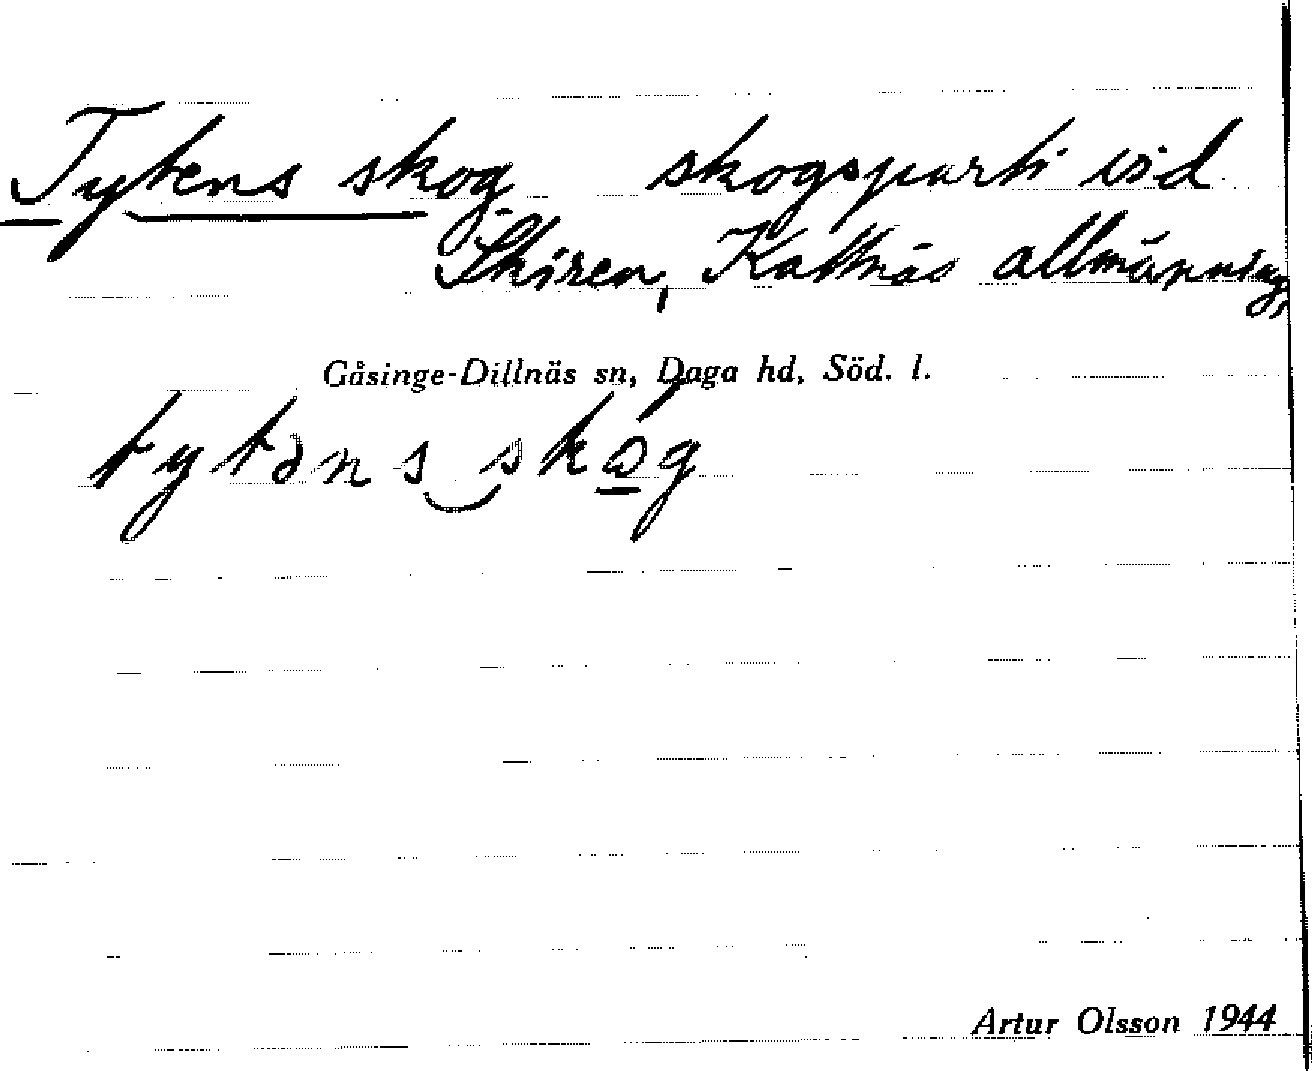 Tytens skog skogsparti vid
Skiren, Kattnäs allmänning,
Gåsinge-Dillnäs sn, Daga hd, Söd. l.
tytəns‿skó̠g
Artur Olsson 1944